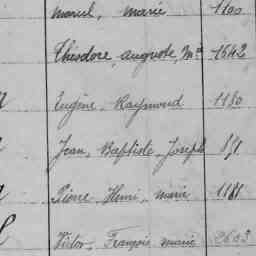 marcel, marie 1100
Théodore auguste, M<sup>ie</sup> 1642
Eugène, Raymond 1180
Jean, Baptiste, Joseph 851
Pierre, Henri, marie 1181
Victor, François, marie 2603